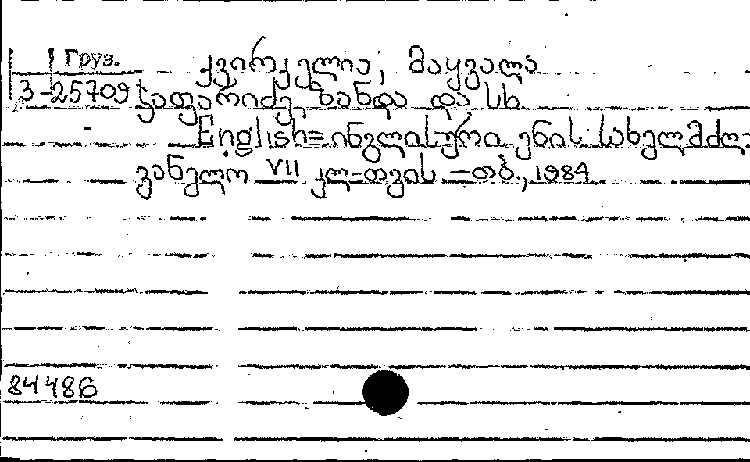 Груз.
3-25709
კვირკელია, მაყვალა
ჯაფარიძე, ზანდა და სხ.
English=ინგლისური ენის სახელმძღ-
ვანელო VII კლ-თვის -თბ., 1984
84486